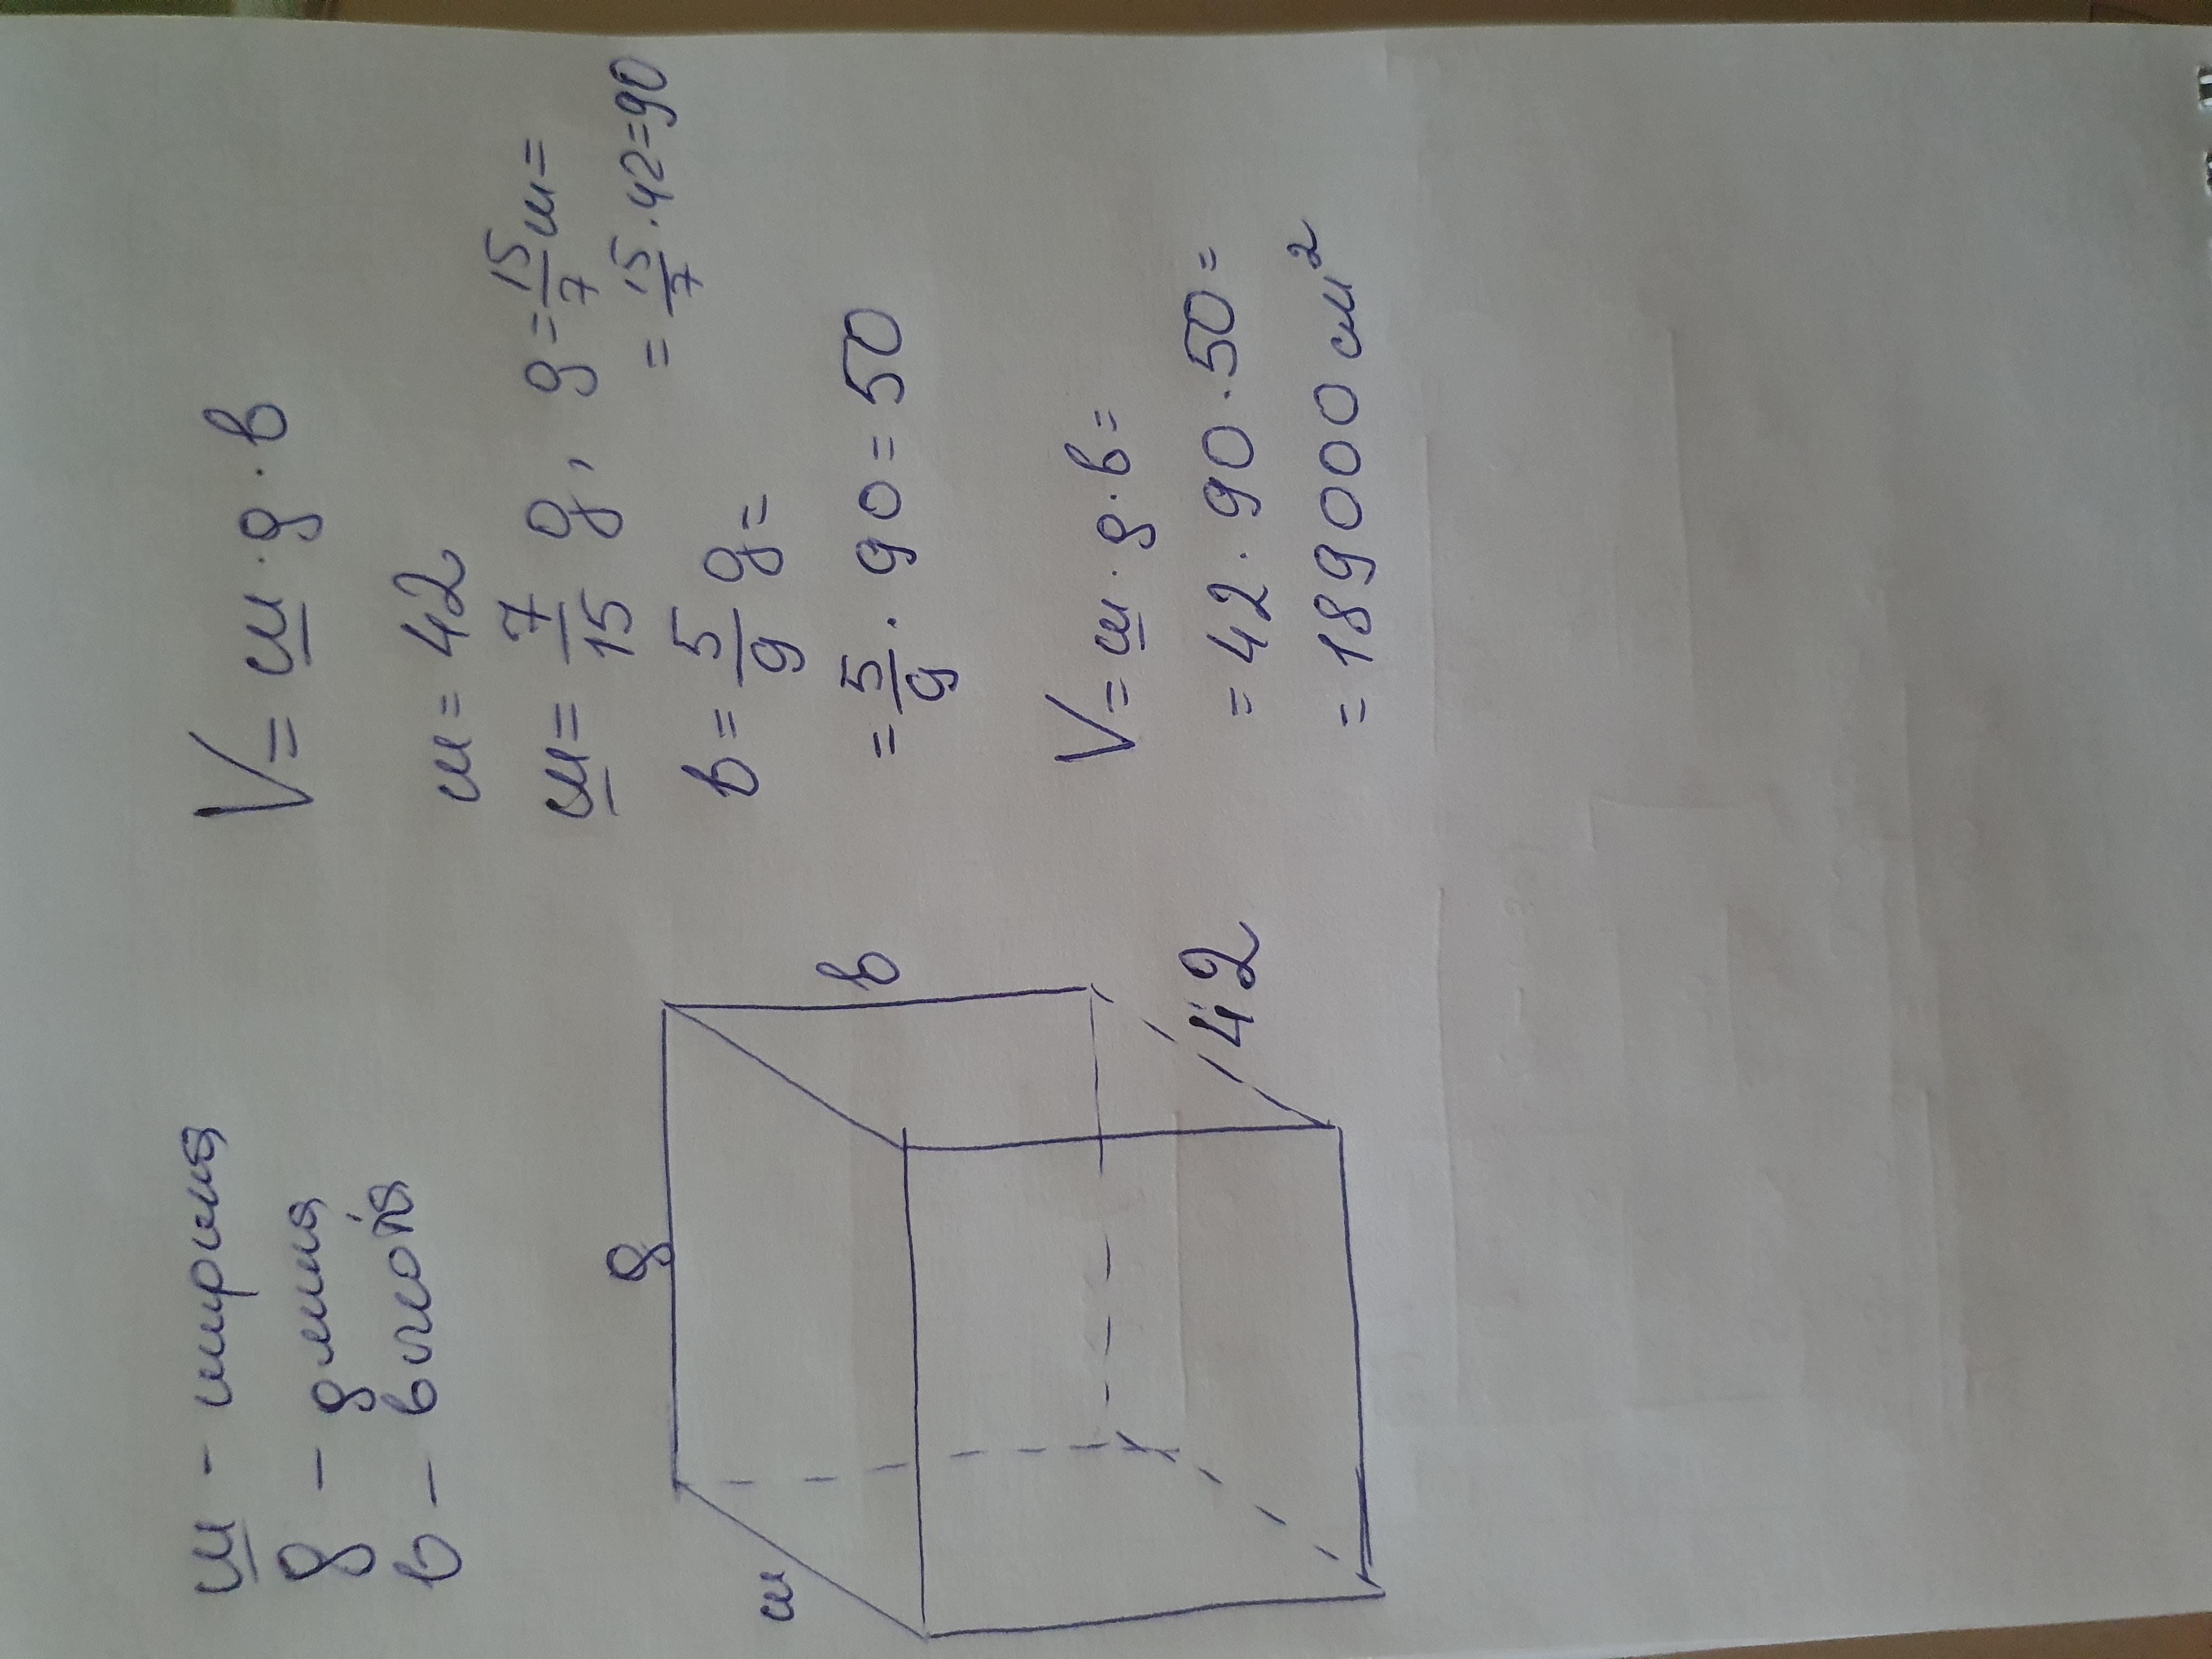 ш - ширина
д - длина
в - висота
V = ш · д · в
ш = 42
ш = 7/15 д, д = 15/7 ш =
= 15/7 · 42 = 90
в = 5/9 д =
= 5/9 · 90 = 50
V = ш · д · в =
= 42 · 90 · 50 =
= 189000 см²
д
ш
в
42